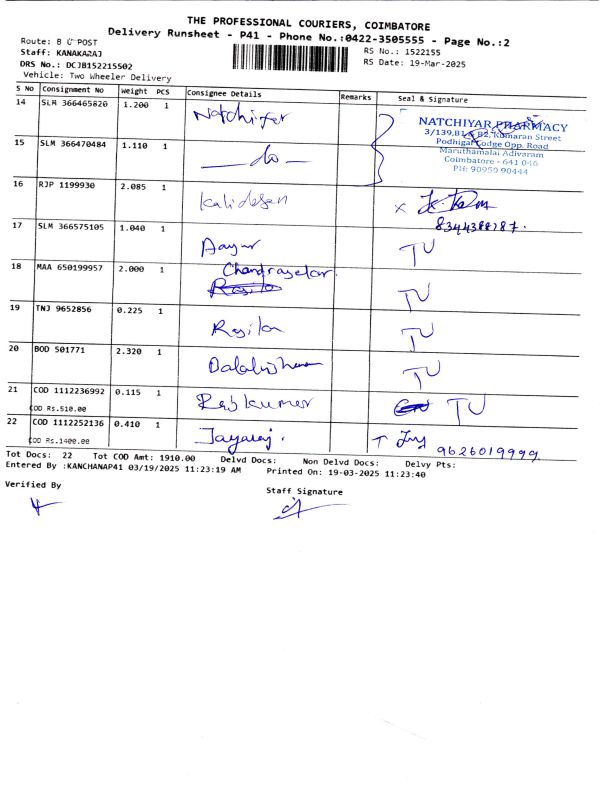 THE PROFESSIONAL COURIERS, COIMBATORE
Delivery Runsheet - P41 - Phone No.:0422-3505555 - Page No.:2
Route: B C POST
Staff: KANAKARAJ
DRS No.: DCJB152215502
Vehicle: Two Wheeler Delivery
RS No.: 1522155
RS Date: 19-Mar-2025
S No Consignment No Weight PCS Consignee Details Remarks Seal & Signature
14 SLM 366465820 1.200 1 Natchiyer
NATCHIYAR PHARMACY
3/139,B1 & B2, Kumaran Street
Podhigai Lodge Opp. Road
Maruthamalai Adivaram
Coimbatore - 641 046
PH: 90959 90444
15 SLM 366470484 1.110 1 — do —
16 RJP 1199930 2.085 1 Kalidasan x
8344388787.
17 SLM 366575105 1.040 1 TU
18 MAA 650199957 2.000 1 Chandrasekar. TU
19 TNJ 9652856 0.225 1 TU
20 BOD 501771 2.320 1 TU
21 COD 1112236992 0.115 1 Rajkumar TU
COD Rs.510.00
22 COD 1112252136 0.410 1 Jayaraj.
9626019999
COD Rs.1400.00
Tot Docs: 22 Tot COD Amt: 1910.00 Delvd Docs: Non Delvd Docs: Delvy Pts:
Entered By :KANCHANAP41 03/19/2025 11:23:19 AM Printed On: 19-03-2025 11:23:40
Verified By
Staff Signature